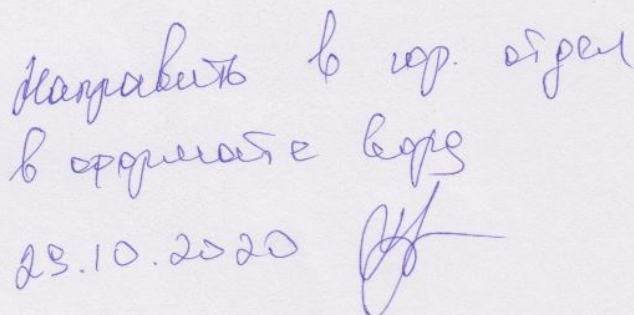 Направить в юр. отдел
в формате ворд
29.10.2020